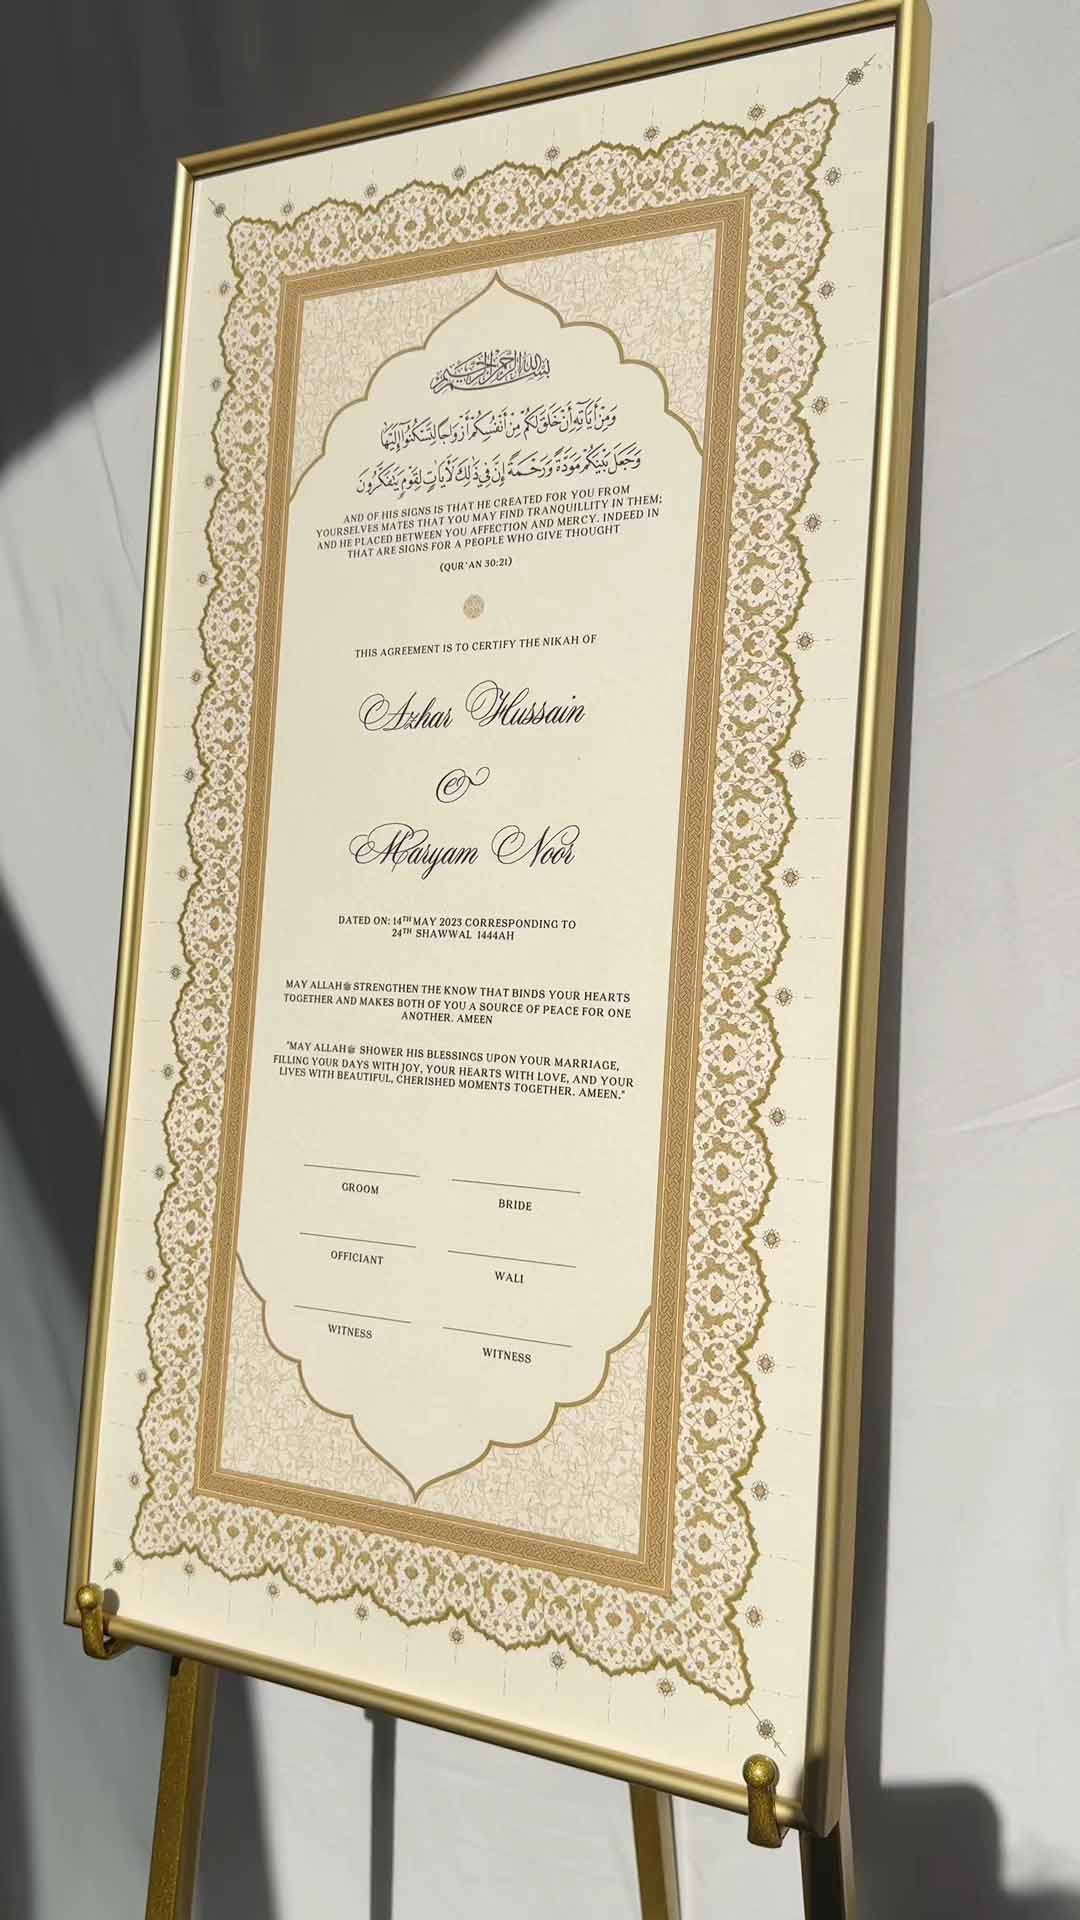 بسم الله الرحمن الرحيم
وَمِنْ آيَاتِهِ أَنْ خَلَقَ لَكُمْ مِنْ أَنْفُسِكُمْ أَزْوَاجًا لِتَسْكُنُوا إِلَيْهَا
وَجَعَلَ بَيْنَكُمْ مَوَدَّةً وَرَحْمَةً إِنَّ فِي ذَٰلِكَ لَآيَاتٍ لِقَوْمٍ يَتَفَكَّرُونَ
AND OF HIS SIGNS IS THAT HE CREATED FOR YOU FROM
YOURSELVES MATES THAT YOU MAY FIND TRANQUILLITY IN THEM;
AND HE PLACED BETWEEN YOU AFFECTION AND MERCY. INDEED IN
THAT ARE SIGNS FOR A PEOPLE WHO GIVE THOUGHT
(QUR'AN 30:21)
THIS AGREEMENT IS TO CERTIFY THE NIKAH OF
Azhar Hussain
&
Maryam Noor
DATED ON: 14TH MAY 2023 CORRESPONDING TO
24TH SHAWWAL 1444AH
MAY ALLAH ﷻ STRENGTHEN THE KNOW THAT BINDS YOUR HEARTS
TOGETHER AND MAKES BOTH OF YOU A SOURCE OF PEACE FOR ONE
ANOTHER. AMEEN
"MAY ALLAH ﷻ SHOWER HIS BLESSINGS UPON YOUR MARRIAGE,
FILLING YOUR DAYS WITH JOY, YOUR HEARTS WITH LOVE, AND YOUR
LIVES WITH BEAUTIFUL, CHERISHED MOMENTS TOGETHER. AMEEN."
GROOM BRIDE
OFFICIANT WALI
WITNESS WITNESS